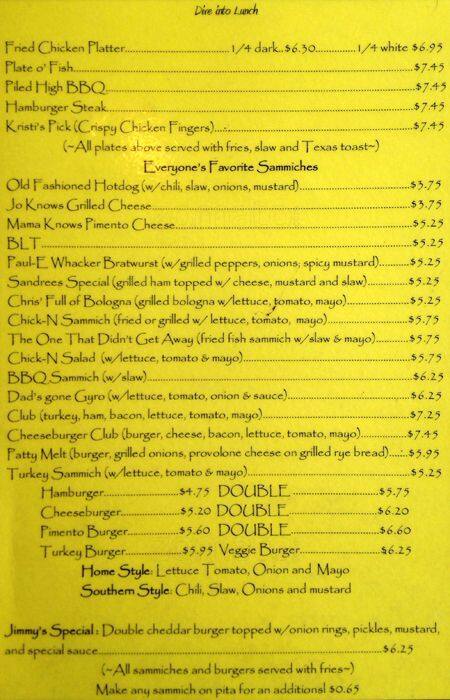 Dive into Lunch
Fried Chicken Platter..............................1/4 dark..$6.30............1/4 white $6.95
Plate o' Fish..........................................................................$7.45
Piled High BBQ....................................................................$7.45
Hamburger Steak..................................................................$7.45
Kristi's Pick (Crispy Chicken Fingers)...................................$7.45
(~All plates above served with fries, slaw and Texas toast~)
Everyone's Favorite Sammiches
Old Fashioned Hotdog (w/chili, slaw, onions, mustard)............................$3.75
Jo Knows Grilled Cheese..................................................................$3.75
Mama Knows Pimento Cheese...........................................................$5.25
BLT.............................................................................................$5.25
Paul-E Whacker Bratwurst (w/grilled peppers, onions, spicy mustard)........$5.25
Sandrees Special (grilled ham topped w/ cheese, mustard and slaw)..........$5.25
Chris' Full of Bologna (grilled bologna w/lettuce, tomato, mayo)................$5.25
Chick-N Sammich (fried or grilled w/ lettuce, tomato, mayo)....................$5.75
The One That Didn't Get Away (fried fish sammich w/slaw & mayo).........$5.75
Chick-N Salad (w/lettuce, tomato & mayo)..........................................$5.75
BBQ Sammich (w/slaw)...................................................................$6.25
Dad's gone Gyro (w/lettuce, tomato, onion & sauce)..............................$6.25
Club (turkey, ham, bacon, lettuce, tomato, mayo)...................................$7.25
Cheeseburger Club (burger, cheese, bacon, lettuce, tomato, mayo)............$7.45
Patty Melt (burger, grilled onions, provolone cheese on grilled rye bread).....$5.95
Turkey Sammich (w/lettuce, tomato & mayo).......................................$5.25
Hamburger..................$4.75 DOUBLE .....................$5.75
Cheeseburger..............$5.20 DOUBLE......................$6.20
Pimento Burger...........$5.60 DOUBLE......................$6.60
Turkey Burger.............$5.95 Veggie Burger....................$6.25
Home Style: Lettuce Tomato, Onion and Mayo
Southern Style: Chili, Slaw, Onions and mustard
Jimmy's Special : Double cheddar burger topped w/onion rings, pickles, mustard,
and special sauce..................................................................$6.25
(~All sammiches and burgers served with fries~)
Make any sammich on pita for an additionsl $0.65